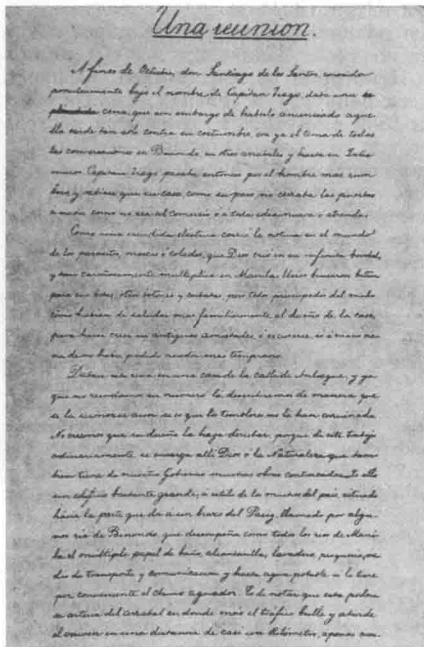 Una reunion.
A fines de Octubre, don Santiago de los Santos, conocido
popularmente bajo el nombre de Capitan Tiago, daba una
cena, que sin embargo de haberlo anunciado aque-
lla tarde tan solo contra su costumbre, era ya el tema de todas
las conversaciones en Binondo, en otros arrabales y hasta en Intra-
muros. Capitan Tiago pasaba entonces por el hombre mas rum-
boso y sabíase que su casa, como su pais, no cerraba las puertas
a nadie, como no sea al comercio ó a toda idea nueva ó atrevida.
Como una sacudida eléctrica corrió la noticia en el mundo
de los parásitos, moscas ó colados, que Dios crió en su infinita bondad,
y tan cariñosamente multiplica en Manila. Unos buscaron betun
para sus botas, otros botones y corbatas, pero todos preocupados del modo
como habian de saludar mas familiarmente al dueño de la casa,
para hacer creer en antiguas amistades, ó escusarse, si á mano vie-
ne de no haber podido acudir mas temprano.
Dábase esta cena en una casa de la calle de Anloague, y ya
que no recordamos su número la describiremos de manera que
se la reconozca aun, si es que los temblores no la han arruinado.
No creemos que su dueño la haya derribado, porque de este trabajo
ordinariamente se encarga allí Dios ó la Naturaleza que tam-
bien tiene de nuestro Gobierno muchas obras contratadas. Es ella
un edificio bastante grande, al estilo de los muchos del pais, situado
hácia la parte que da a un brazo del Pasig, llamado por algu-
nos ria de Binondo, que desempeña como todos los rios de Mani-
la el multiple papel de baño, alcantarilla, lavadero, pesquería, me-
dio de transporte y comunicacion y hasta agua potable si lo tiene
por conveniente el chino aguador. Es de notar que esta poderosa
arteria del arrabal en donde más el tráfico bulle y aturde
el vaiven en una distancia de casi un kilómetro, apenas